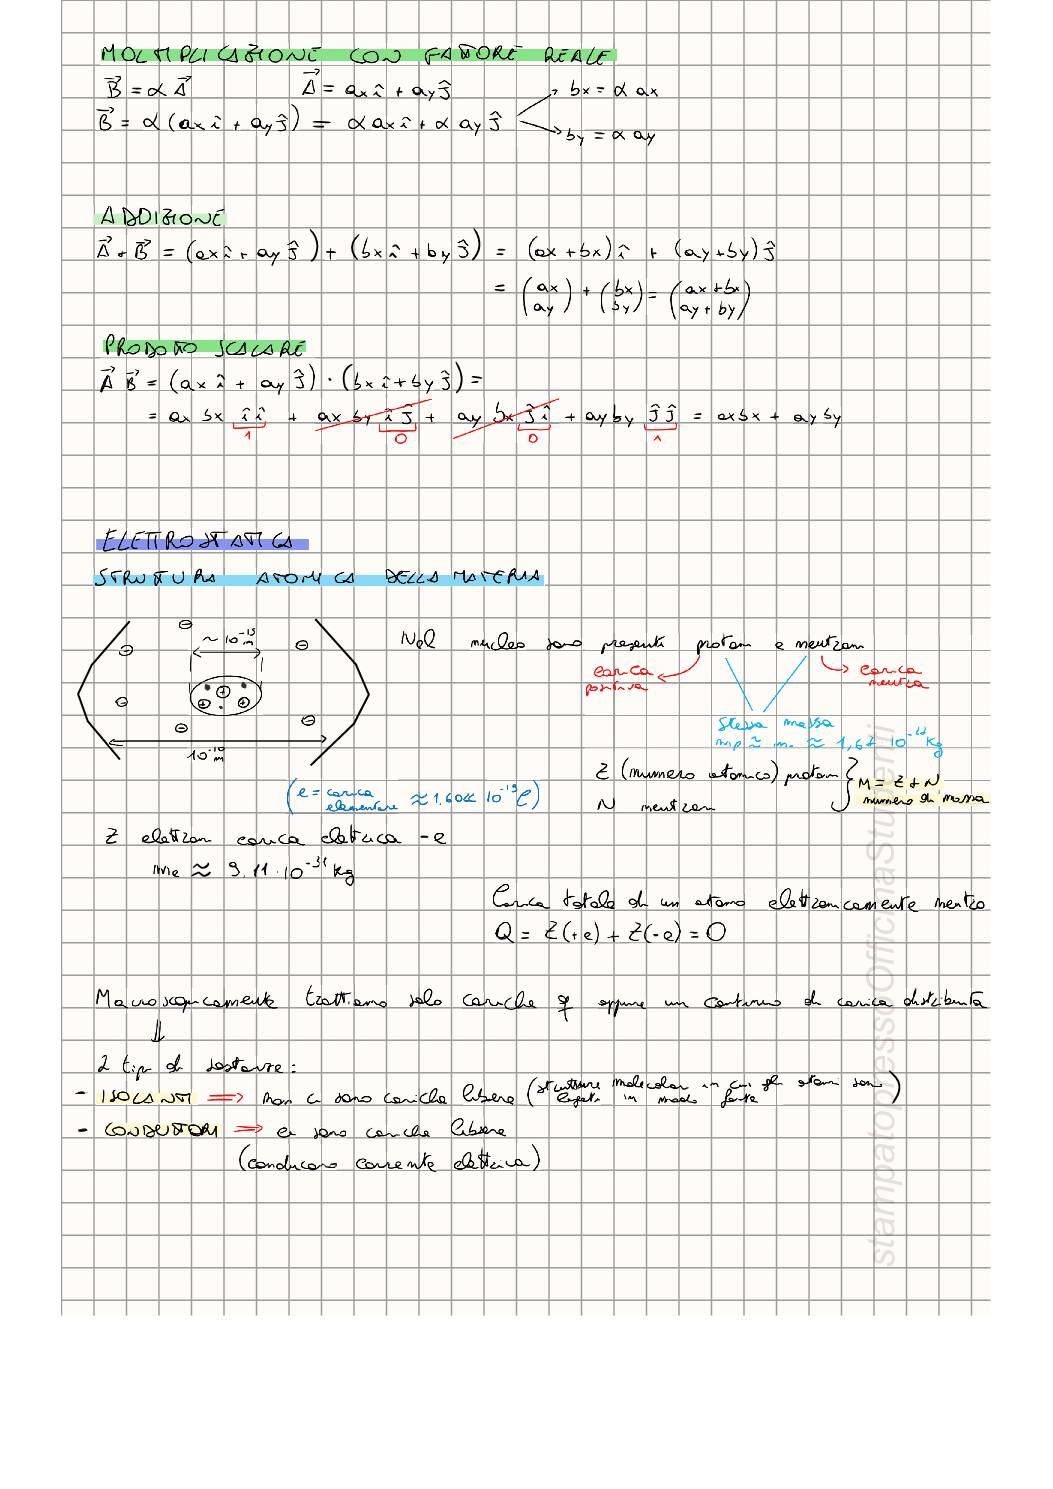 MOLTIPLICAZIONE CON FATTORE REALE
B⃗ = α A⃗   A⃗ = ax î + ay ĵ   bx = α ax
B⃗ = α (ax î + ay ĵ) = α ax î + α ay ĵ   by = α ay
ADDIZIONE
A⃗ + B⃗ = (ax î + ay ĵ) + (bx î + by ĵ) = (ax + bx) î + (ay + by) ĵ
= (ax ay) + (bx by) = (ax + bx ay + by)
PRODOTTO SCALARE
A⃗ B⃗ = (ax î + ay ĵ) · (bx î + by ĵ) =
= ax bx î î + ax by î ĵ + ay bx ĵ î + ay by ĵ ĵ = axbx + ay by
1 0 0 1
ELETTROSTATICA
STRUTTURA ATOMICA DELLA MATERIA
~ 10⁻¹⁵ m
Nel nucleo sono presenti protoni e neutroni
carica positiva   carica neutra
stessa massa
mp ≈ mn ≈ 1,67 10⁻²⁷ kg
10⁻¹⁰ m
Z (numero atomico) protoni
N neutroni
M = Z + N
numero di massa
(e = carica elementare ≈ 1.602 10⁻¹⁹ C)
Z elettroni carica elettrica -e
me ≈ 9.11 · 10⁻³¹ kg
Carica totale di un atomo elettronicamente neutro
Q = Z(+e) + Z(-e) = 0
Macroscopicamente trattiamo solo cariche q oppure un continuo di carica distribuita
⇓
2 tipi di sostanze:
- ISOLANTI ⟹ non ci sono cariche libere (strutture molecolari in cui gli atomi sono legati in modo forte)
- CONDUTTORI ⟹ ci sono cariche libere
(conducono corrente elettrica)
stampatopressoOfficinaStudenti